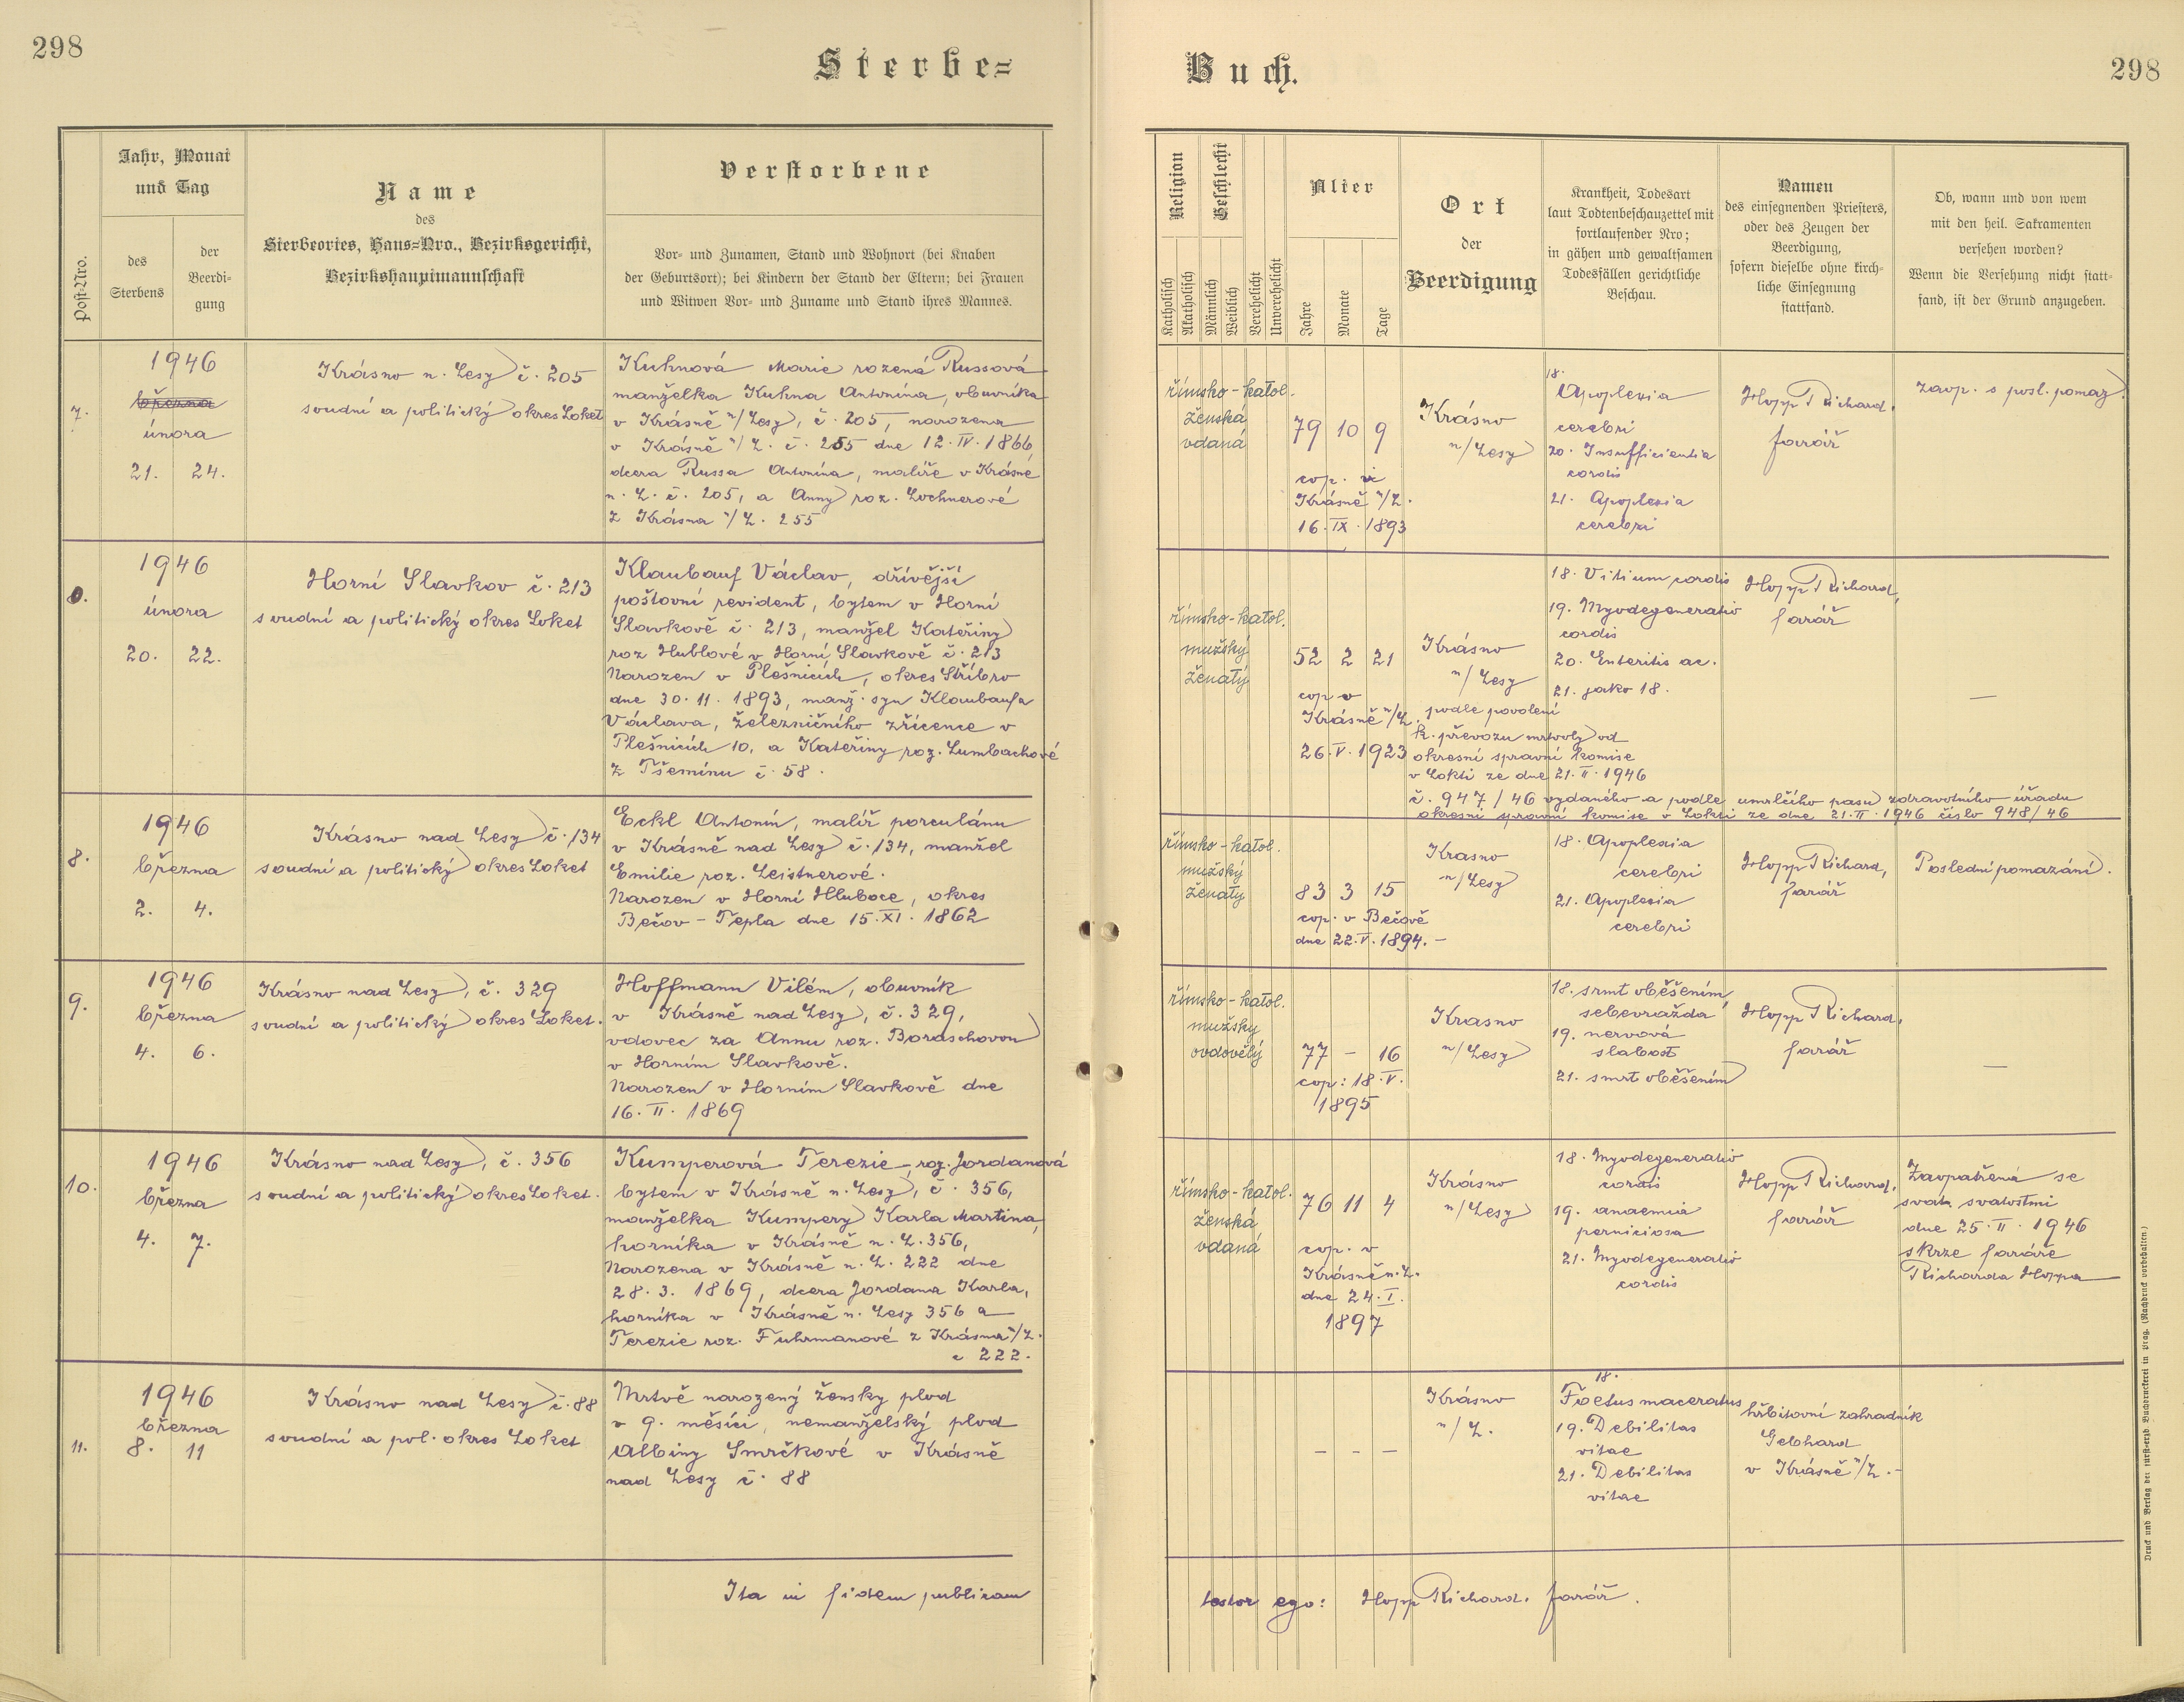 298
Sterbe=
Buch.
298
Post-Nro.
Jahr, Monat
und Tag
des
Sterbens
der
Beerdi-
gung
Name
des
Sterbeortes, Haus=Nro., Bezirksgericht,
Bezirkshauptmannschaft
Verstorbene
Vor- und Zunamen, Stand und Wohnort (bei Knaben
der Geburtsort); bei Kindern der Stand der Eltern; bei Frauen
und Witwen Vor- und Zuname und Stand ihres Mannes.
Religion
Katholisch
Akatholisch
Geschlecht
Männlich
Weiblich
Verehelicht
Unverehelicht
Alter
Jahre
Monate
Tage
Ort
der
Beerdigung
Krankheit, Todesart
laut Todtenbeschauzettel mit
fortlaufender Nro;
in gähen und gewaltsamen
Todesfällen gerichtliche
Beschau.
Namen
des einsegnenden Priesters,
oder des Zeugen der
Beerdigung,
sofern dieselbe ohne kirch-
liche Einsegnung
stattfand.
Ob, wann und von wem
mit den heil. Sakramenten
versehen worden?
Wenn die Versehung nicht statt-
fand, ist der Grund anzugeben.
7.
1946
března
února
21. 24.
Krásno n. Lesy č. 205
soudní a politický okres Loket
Kuhnová Marie rozená Russová
manželka Kuhna Antonína, obuvníka
v Krásně n/Lesy, č. 205, narozena
v Krásně n/L. č. 255 dne 12. IV. 1866,
dcera Russa Antonína, malíře v Krásně
n. L. č. 205, a Anny roz. Lochnerové
z Krásna n/L. 255
římsko-katol.
ženská
vdaná
79 10 9
cop. v
Krásně n/L.
16. IX. 1893
Krásno
n/Lesy
18.
Apoplexia
cerebri
20. Insufficientia
cordis
21. Apoplexia
cerebri
Hopp Richard,
farář
zaop. s posl. pomaz.
8.
1946
února
20. 22.
Horní Slavkov č. 213
soudní a politický okres Loket
Klaubauf Václav, dřívější
poštovní revident, bytem v Horní
Slavkově č. 213, manžel Kateřiny
roz Hublové v Horní Slavkově č. 213
Narozen v Plešnicích, okres Stříbro
dne 30. 11. 1893, manž. syn Klaubaufa
Václava, železničního zřícence v
Plešnicích 10, a Kateřiny roz. Lumbachové
z Tšemínu č. 58.
římsko-katol.
mužský
ženatý
52 2 21
cop v
Krásně n/L.
26. V. 1923
Krásno
n/Lesy
podle povolení
k. převozu mrtvoly od
okresní správní komise
v Lokti ze dne 21. II. 1946
č. 947/46 vydaného a podle umrlčího pasu zdravotního úřadu
okresní správní komise v Lokti ze dne 21. II. 1946 číslo 948/46
18. Vitium cordis
19. Myodegeneratio
cordis
20. Enteritis ac.
21. jako 18.
Hopp Richard,
farář
—
8.
1946
března
2. 4.
Krásno nad Lesy č. 134
soudní a politický okres Loket
Eckl Antonín, malíř porculánu
v Krásně nad Lesy č. 134, manžel
Emilie roz. Leistnerové.
Narozen v Horní Hluboce, okres
Bečov - Tepla dne 15. XI. 1862
římsko-katol.
mužský
ženatý
83 3 15
cop. v Bečově
dne 22. V. 1894. -
Krasno
n/Lesy
18. Apoplexia
cerebri
21. Apoplexia
cerebri
Hopp Richard,
farář
Poslední pomazání.
9.
1946
března
4. 6.
Krásno nad Lesy, č. 329
soudní a politický okres Loket.
Hoffmann Vilém, obuvník
v Krásně nad Lesy, č. 329,
vdovec za Annu roz. Boraschovou
v Horním Slavkově.
Narozen v Horním Slavkově dne
16. II. 1869
římsko-katol.
mužsky
ovdovělý
77 - 16
cop: 18. V.
1895
Krasno
n/Lesy
18. srmt oběšením,
sebevražda
19. nervová
slabost
21. smrt oběšením
Hopp Richard,
farář
—
10.
1946
března
4. 7.
Krásno nad Lesy, č. 356
soudní a politický okres Loket.
Kumperová Terezie, roz. Jordanová
bytem v Krásně n. Lesy, č. 356,
manželka Kumpery Karla Martina,
horníka v Krásně n. L. 356,
Narozena v Krásně n. L. 222 dne
28. 3. 1869, dcera Jordana Karla,
horníka v Krásně n. Lesy 356 a
Terezie roz. Fuhrmanové z Krásna n/L.
č 222.
římsko-katol.
ženská
vdaná
76 11 4
cop. v
Krásně n. L.
dne 24. I.
1897
Krásno
n/Lesy
18. Myodegeneratio
cordis
19. anaemia
perniciosa
21. Myodegeneratio
cordis
Hopp Richard,
farář
Zaopatřená se
svat. svatostmi
dne 25. II. 1946
skrze faráře
Richarda Hoppa
11.
1946
března
8. 11
Krásno nad Lesy č. 88
soudní a pol. okres Loket
Mrtvě narozený žensky plod
v 9. měsíci, nemanželský plod
Albiny Smrčkové v Krásně
nad Lesy č. 88
- - -
Krásno
n/L.
18.
Foetus maceratus
19. Debilitas
vitae
21. Debilitas
vitae
hřbitovní zahradník
Gebhard
v Krásně n/L. -
Ita in fidem publicam
testor ego: Hopp Richard, farář.
Druck und Verlag der fürst-erzb Buchdruckerei in Prag. (Nachdruck vorbehalten.)